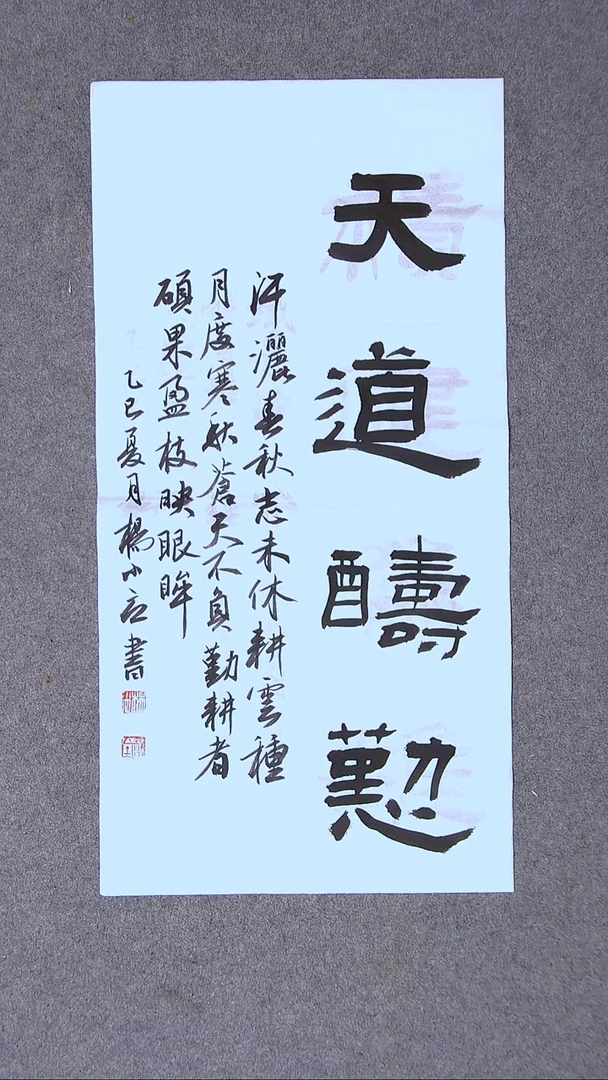 天道醻懃
汗灑春秋志未休耕雲種
月度寒秋蒼天不負勤耕者
碩果盈枝映眼眸
乙巳夏月楊小
書